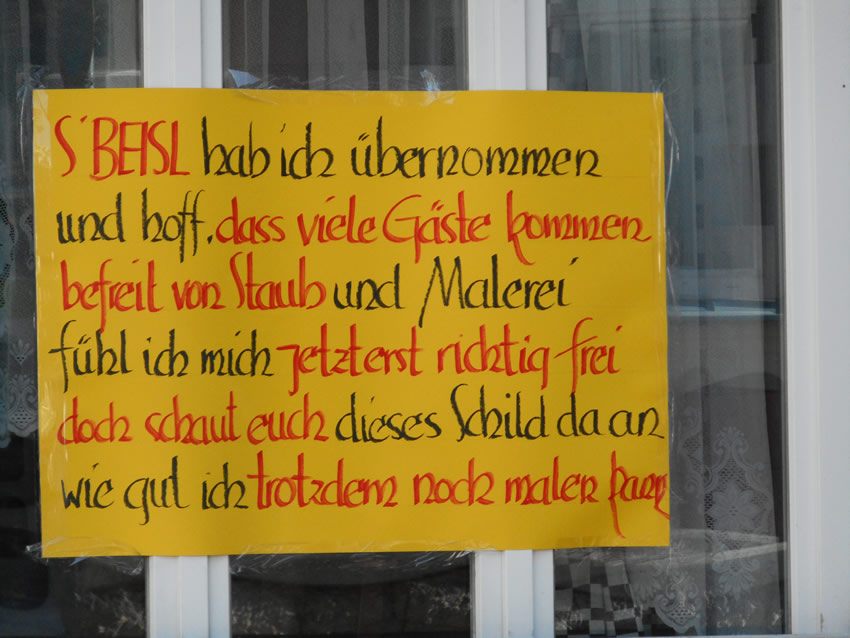 S'BEISL hab ich übernommen
und hoff, dass viele Gäste kommen
befreit von Staub und Malerei
fühl ich mich jetzterst richtig frei
doch schaut euch dieses Schild da an
wie gut ich trotzdem noch malen kann